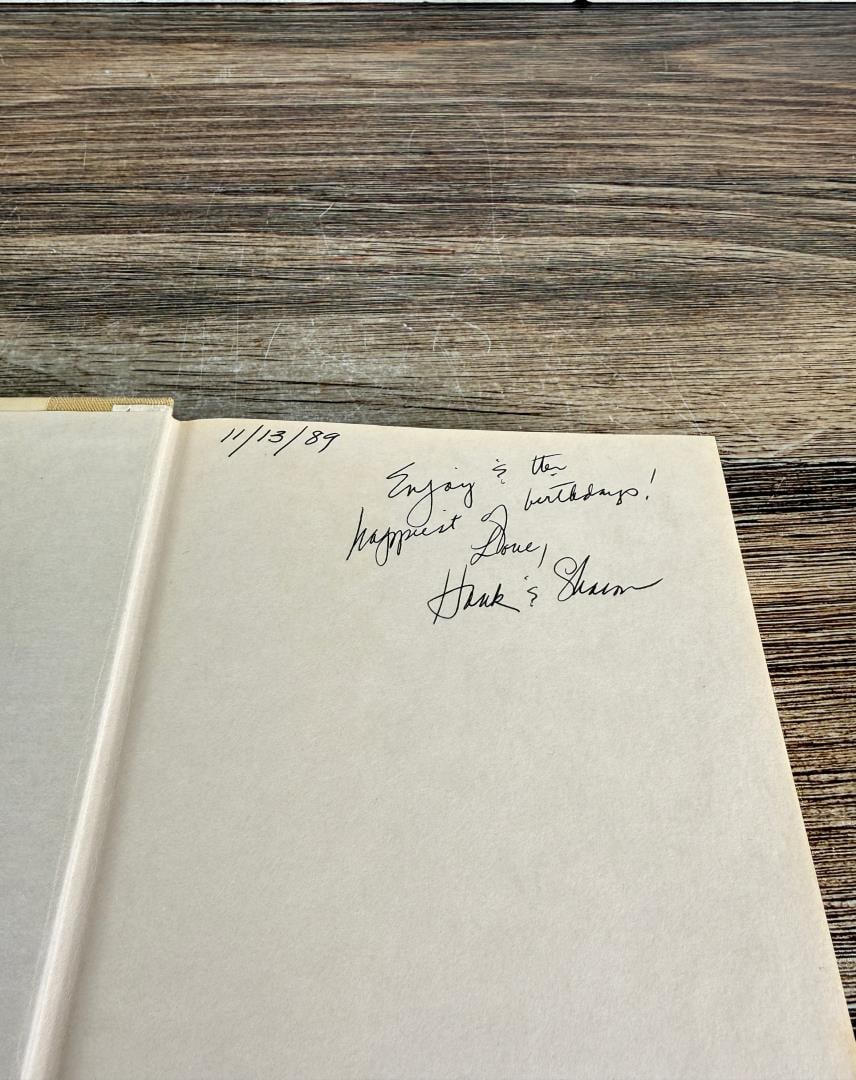 11/13/89
Enjoy & the
happiest of birthdays!
Love,
Hank & Sharon